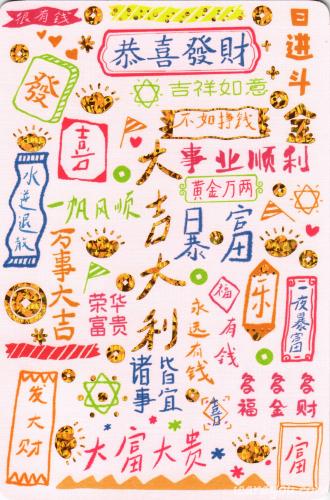 很有钱
恭喜發財
日进斗金
發
吉祥如意
喜
不如挣钱
大吉大利
事业顺利
水逆退散
黄金万两
一帆风顺
暴富
万事大吉
乐
福
有钱
一夜暴富
荣华富贵
永远有钱
诸事皆宜
多福
多金
多财
喜
发大财
大富大贵
富